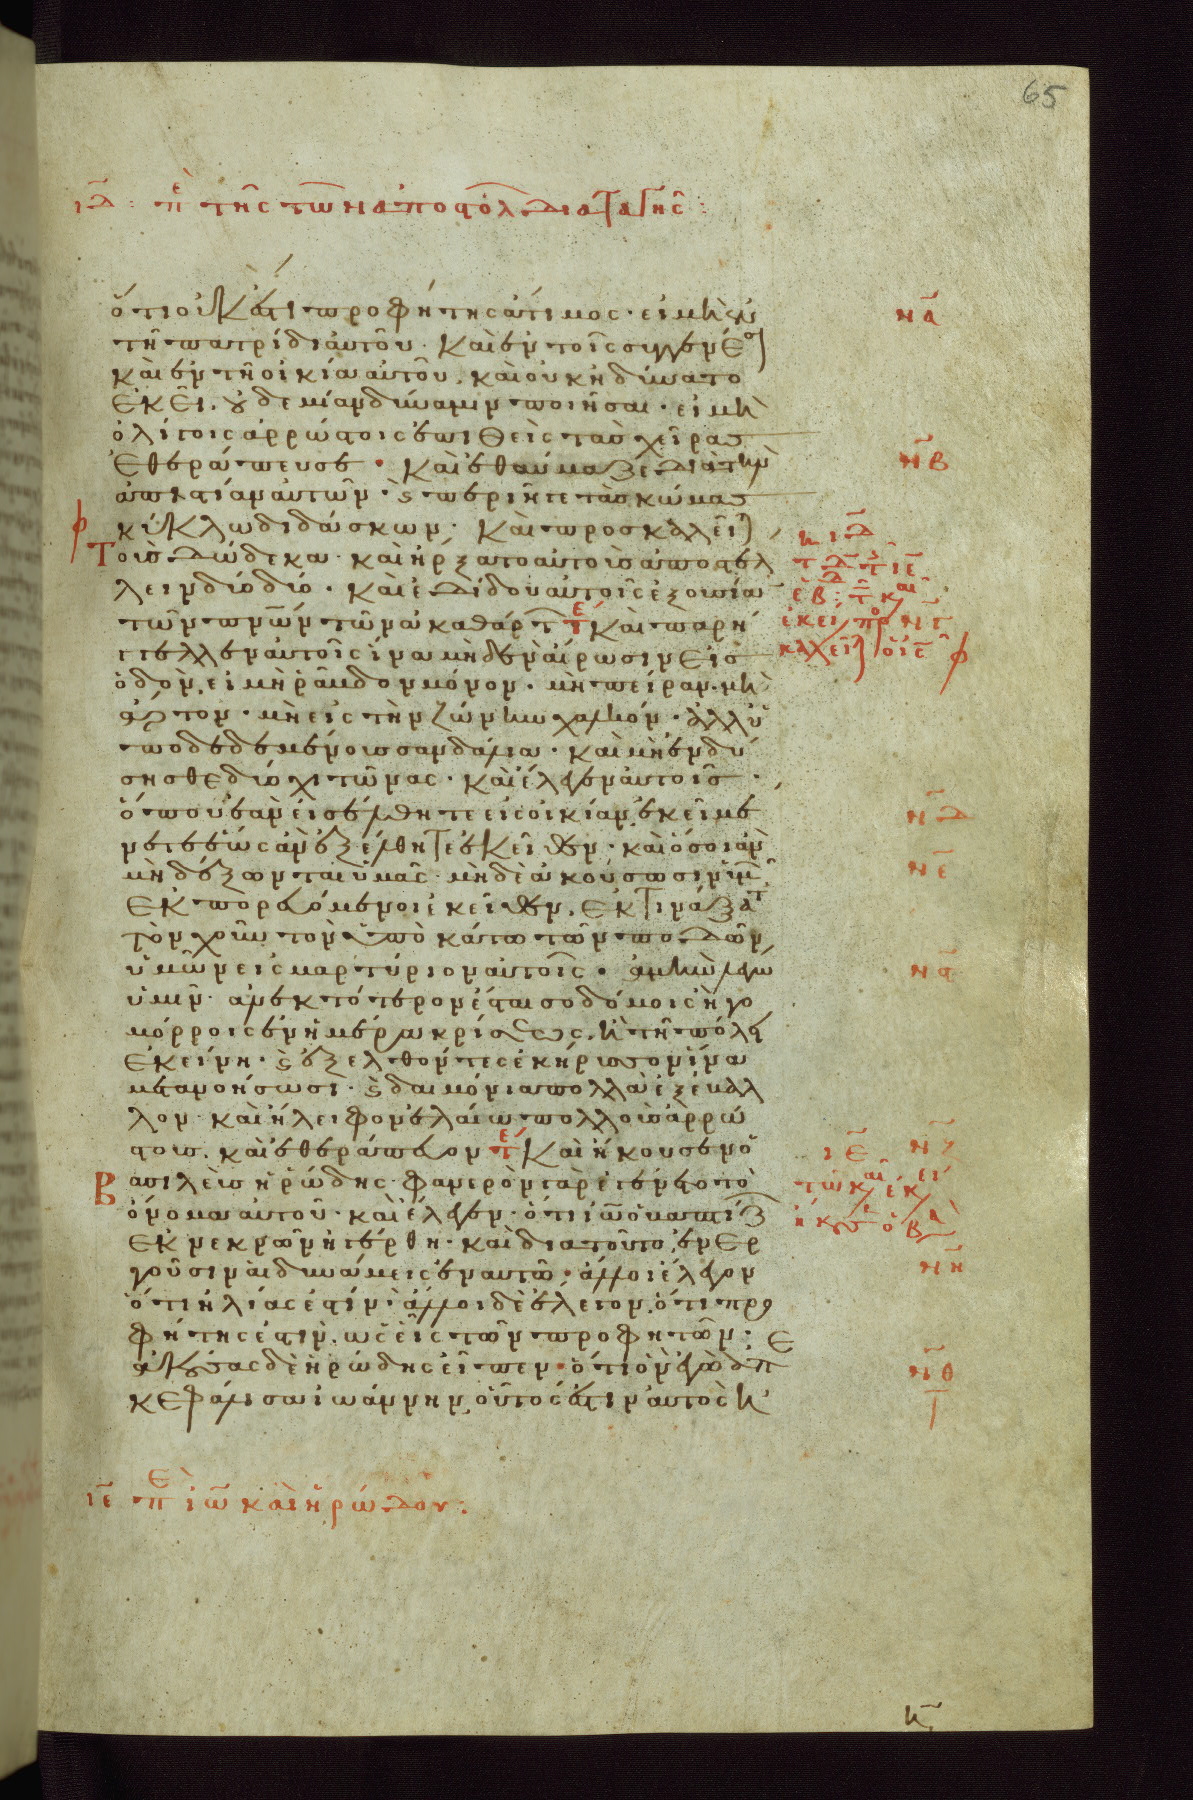 65
ιδ: περὶ τῆς τῶν ἀποστόλ διαταγῆς:
ὅτι οὐκ ἔστι προφήτης ἄτιμος· εἰ μὴ ἐν
τῆ πατρίδι αὐτοῦ· καὶ ἐν τοῖς συγγενέσι
καὶ ἐν τῆ οἰκία αὐτοῦ, καὶ οὐκ ἠδύνατο
ἐκεῖ, οὐδεμίαν δύναμιν ποιῆσαι· εἰ μὴ
ὀλίγοις ἀρρώστοις ἐπιθεὶς τὰς χεῖρας
ἐθεράπευσε· καὶ ἐθαύμαζε διὰ τὴν
ἀπιστίαν αὐτῶν· καὶ περιῆγε τὰς κώμας
κύκλω διδάσκων· καὶ προσκαλεῖται
τοὺς δώδεκα· καὶ ἤρξατο αὐτοὺς ἀποστέλ
λειν δύο δύο· καὶ ἐδίδου αὐτοῖς ἐξουσίαν
τῶν πνῶν τῶν ἀκαθάρτ τε καὶ παρή
γγελλεν αὐτοῖς ἵνα μηδὲν αἴρωσιν εἰς
ὁδὸν, εἰ μὴ ῥάβδον μόνον· μὴ πείραν· μὴ
ἄρτον· μὴ εἰς τὴν ζώνην χαλκόν· ἀλλ' ὑ
ποδεδεμένους σανδάλια· καὶ μὴ ἐνδύ
σησθε δύο χιτῶνας· καὶ ἔλεγεν αὐτοῖς·
ὅπου ἐὰν εἰσέλθητε εἰς οἰκίαν, ἐκεῖ με
νετε ἕως ἂν ἐξέλθητε ἐκεῖθεν· καὶ ὅσοι ἂν
μὴ δέξωνται ὑμᾶς· μηδὲ ἀκούσωσιν ὑμ
ἐκπορευόμενοι ἐκεῖθεν, ἐκτινάξατ
τὸν χοῦν τὸν ὑποκάτω τῶν ποδῶν
ὑμῶν εἰς μαρτύριον αὐτοῖς· ἀμὴν λέγω
ὑμῖν· ἀνεκτότερον ἔσται σοδόμοις ἢ γο
μόρροις ἐν ἡμέρα κρίσεως, ἢ τῆ πόλει
ἐκείνη· καὶ ἐξελθόντες ἐκήρυσσον ἵνα
μετανοήσωσι· καὶ δαιμόνια πολλὰ ἐξέβαλ
λον· καὶ ἤλειφον ἐλαίω πολλοὺς ἀρρώ
στους, καὶ ἐθεράπευον τε καὶ ἤκουσεν ὁ
βασιλεὺς ἡρώδης· φανερὸν γὰρ ἐγένετο τὸ
ὄνομα αὐτοῦ· καὶ ἔλεγεν· ὅτι ἰῶ ὁ βαπτίζ
ἐκ νεκρῶν ἠγέρθη· καὶ διὰ τοῦτο, ἐνερ
γοῦσιν αἱ δυνάμεις ἐν αὐτῶ· ἄλλοι ἔλεγον
ὅτι ἠλίας ἐστίν· ἄλλοι δὲ ἔλεγον, ὅτι προ
φήτης ἐστὶν, ὡς εἷς τῶν προφητῶν·
ἀκούσας δὲ ἡρώδης εἶπεν· ὅτι ὃν ἐγὼ ἀπε
κεφάλισα ἰωάννην, οὗτός ἐστιν αὐτὸς ἠ
ιε περὶ ἰῶ καὶ ἡρώδου:
να
νβ
νδ
νε
να
ιε
νζ
νη
νθ